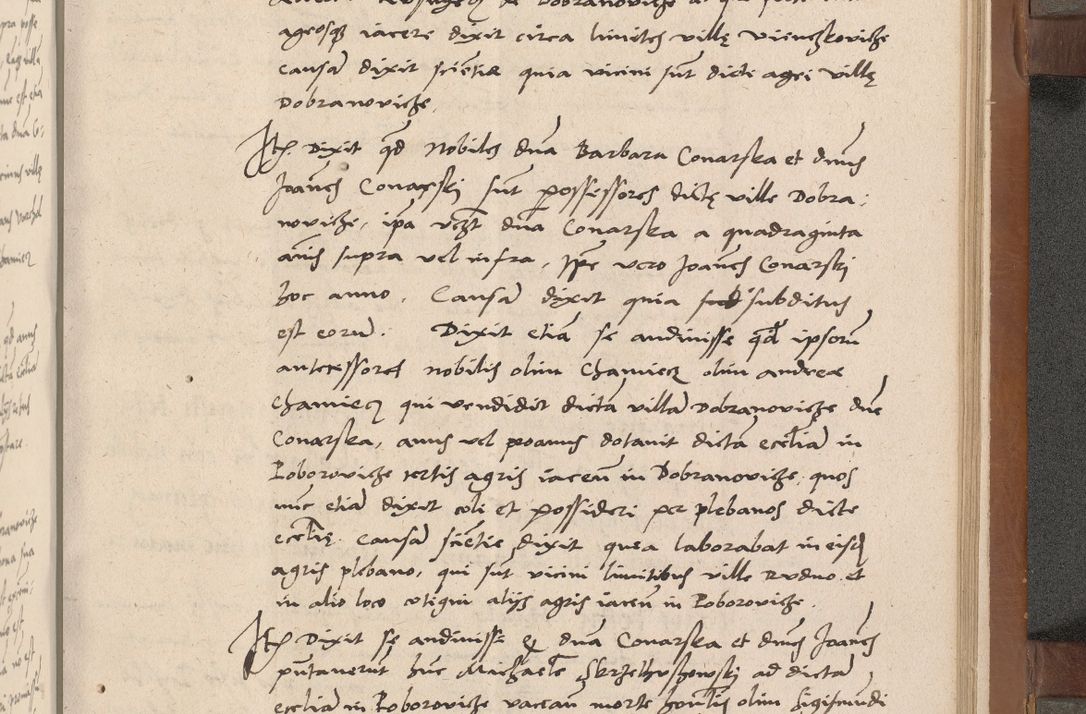 agrosq iacere dixit circa limites villę Vienczkoviche
causā dixit sciētiæ quia vicini sūt dicti agri villę
Dobranoviche.
Itē Dixit qd Nobiles dn̄a Barbara Conarska et dn̄us
Joan̄es Conarski sūt possessores dictę ville Dobra:
noviche, ip̄a dn̄a Conarska a quadraginta
an̄is supra vel infra, ip̄e vero Joan̄es Conarski
hoc anno. Causā dixit quia subditus
est eorū. Dixit etiā se audivisse qd ipsorū
antecessores nobilis olim Chamiecz olim andreæ
Chamiecz qui vendidit dictā villā Dobranoviche dn̄e
Conarska, avus vel proavus dotavit dictā eccliā in
Boboroviche certis agris iacen̄ in Dobranoviche, quos
nūc etiā dixit coli et possideri per plebanos dicte
ecclię. causā sciētie dixit quia laborabat in eisdē
agris plebano, qui sūt vicini limitibus ville Rudno et
in alio loco cōtigui alijs agris iacen̄ in Boboroviche.
Itē Dixit se audivisse q dn̄a Conarska et dn̄us Joan̄es
pn̄taverūt hūc Michaelē ad dictā
eccliā in Boboroviche vacan̄ morte olim Sigismūdi